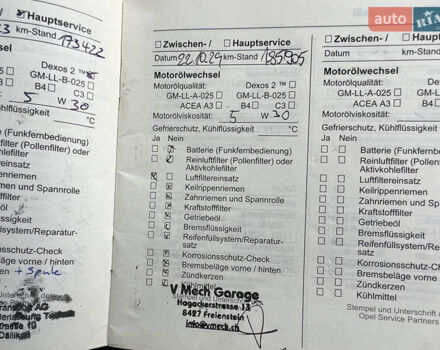 auto RIA
Hauptservice
km-Stand 173422
selwechsel
Dexos 2 ™
GM-LL-B-025
B4 C3
5 W 30
Kühlflüssigkeit °C
(Funkfernbedienung)
(Pollenfilter) oder
einsatz
riemen
en und Spannrolle
+ Spule
Zwischen- / Hauptservice
Datum 22.10.24 km-Stand 185905
Motorölwechsel
Motorölqualität: Dexos 2 ™
GM-LL-A-025 GM-LL-B-025
ACEA A3 B4 C3
Motorölviskosität: 5 W 30
Gefrierschutz, Kühlflüssigkeit °C
Ja Nein
Batterie (Funkfernbedienung)
Reinluftfilter (Pollenfilter) oder
Aktivkohlefilter
Luftfiltereinsatz
Keilrippenriemen
Zahnriemen und Spannrolle
Kraftstofffilter
Getriebeöl
Bremsflüssigkeit
Reifenfüllsystem/Reparatur-
satz
Korrosionsschutz-Check
Bremsbeläge vorne / hinten
Zündkerzen
Kühlmittel
V Mech Garage
Hagackerstrasse 13
8427 Freienstein
info@vmech.ch
Zwischen- / Hauptservice
Datum km-Stand
Motorölwechsel
Motorölqualität:
GM-LL-A-025
ACEA A3
Motorölviskosität:
Gefrierschutz, Kühlflüssigkeit
Ja Nein
Batterie (Funkfernbedienung)
Reinluftfilter (Pollenfilter)
Aktivkohlefilter
Luftfiltereinsatz
Keilrippenriemen
Zahnriemen und Spannrolle
Kraftstofffilter
Getriebeöl
Bremsflüssigkeit
Reifenfüllsystem/Reparatur-
satz
Korrosionsschutz-Check
Bremsbeläge vorne / hinten
Zündkerzen
Kühlmittel
Stempel und Unterschrift
Opel Service Partners